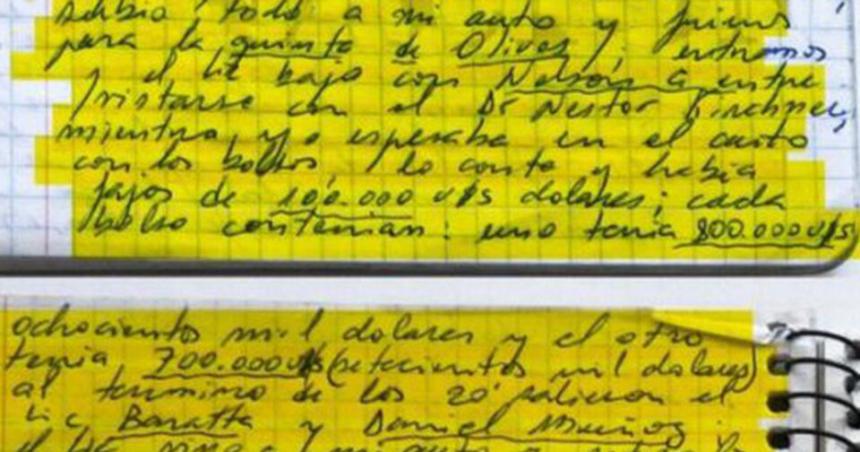 subio todo a mi auto y fuimos
para la quinta de Olivos, entramos
y el Lic bajo con Nelson a entre
/vistarse con el Dr Nestor Kirchner,
mientra, yo esperaba en el auto
con los bolsos, lo conte y habia
fajos de 100.000 u$s dolares; cada
bolso contenian: uno tenia 800.000 u$s
ochocientos mil dolares y el otro
tenia 700.000 u$s (setecientos mil dolares)
al termino de los 20' salieron el
Lic Baratta y Daniel Muñoz
el Lic mi auto